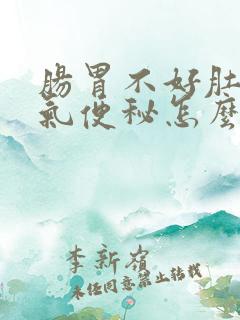 腸胃不好肚
氣便秘怎麼
李新嶺
未任同意禁止转载